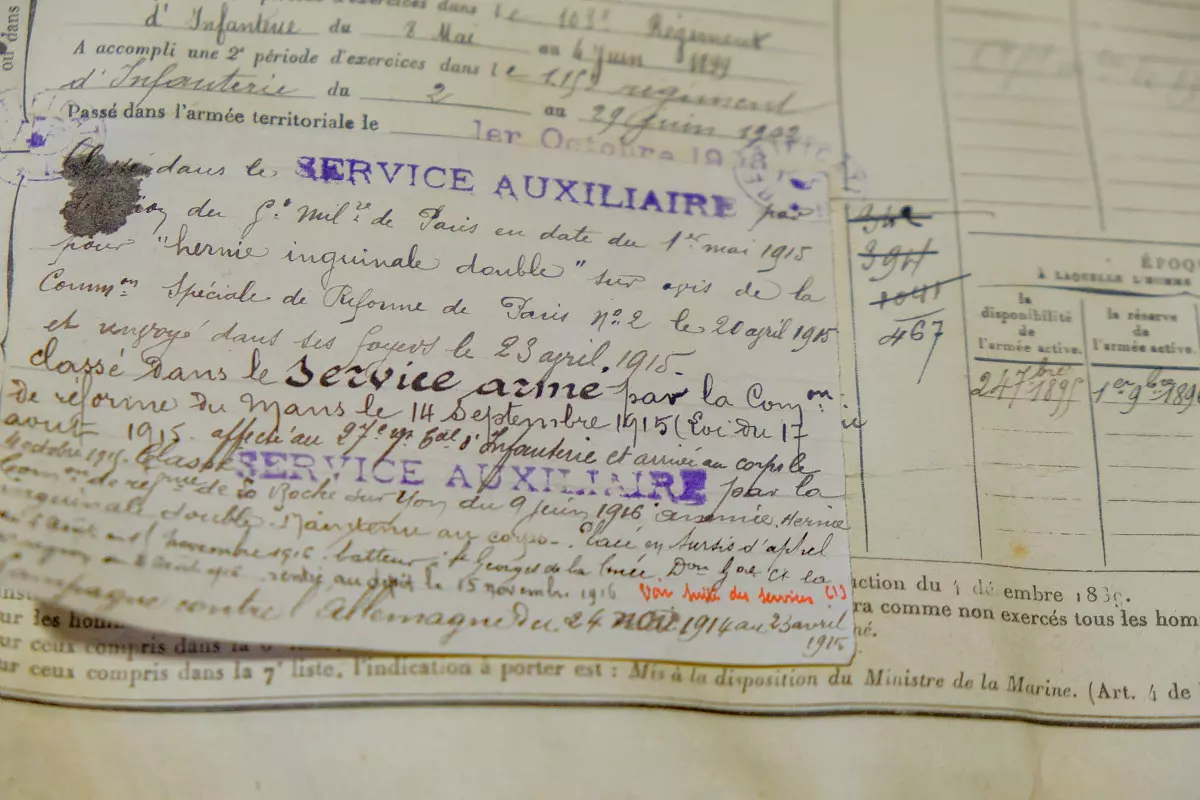 ou dans
période d'exercices dans le 103e Régiment
d'Infanterie du 8 Mai au 4 Juin 1899
A accompli une 2e période d'exercices dans le 115e régiment
d'Infanterie du 2 au 29 Juin 1902
Passé dans l'armée territoriale le 1er Octobre 19
Classé dans le SERVICE AUXILIAIRE par
du Gt Milre de Paris en date du 1er mai 1915
pour "hernie inguinale double" sur avis de la
Common Spéciale de Réforme de Paris No 2 le 20 avril 1915
et renvoyé dans ses foyers le 23 avril 1915.
classé dans le service armé par la Common
de réforme du Mans le 14 Septembre 1915 (Loi du 17
août 1915. affecté au 27e Infanterie et arrivé au corps le
4 octobre 1915. Classé SERVICE AUXILIAIRE par la
de réfme de La Roche sur Yon du 9 juin 1916 Hernie
inguinale double. Maintenu au corps. Placé en sursis d'appel
novembre 1916. batteur à St Georges de la Couée. Don Gal Ct la
rentré au dépôt le 15 novembre 1916 Voir suite des services (1)
Campagne contre l'Allemagne du 24 nov 1914 au 23 avril
1915
342
394
1041
467
ÉPOQU
À LAQUELLE L'HOMME
la disponibilité de l'armée active.
la réserve de l'armée active.
24 7bre 1895
1er 9bre 189
ction du 4 décembre 1839.
ra comme non exercés tous les hom
ur les hom
né.
ur ceux compris dans la 6
ur ceux compris dans la 7e liste, l'indication à porter est : Mis à la disposition du Ministre de la Marine. (Art. 4 de